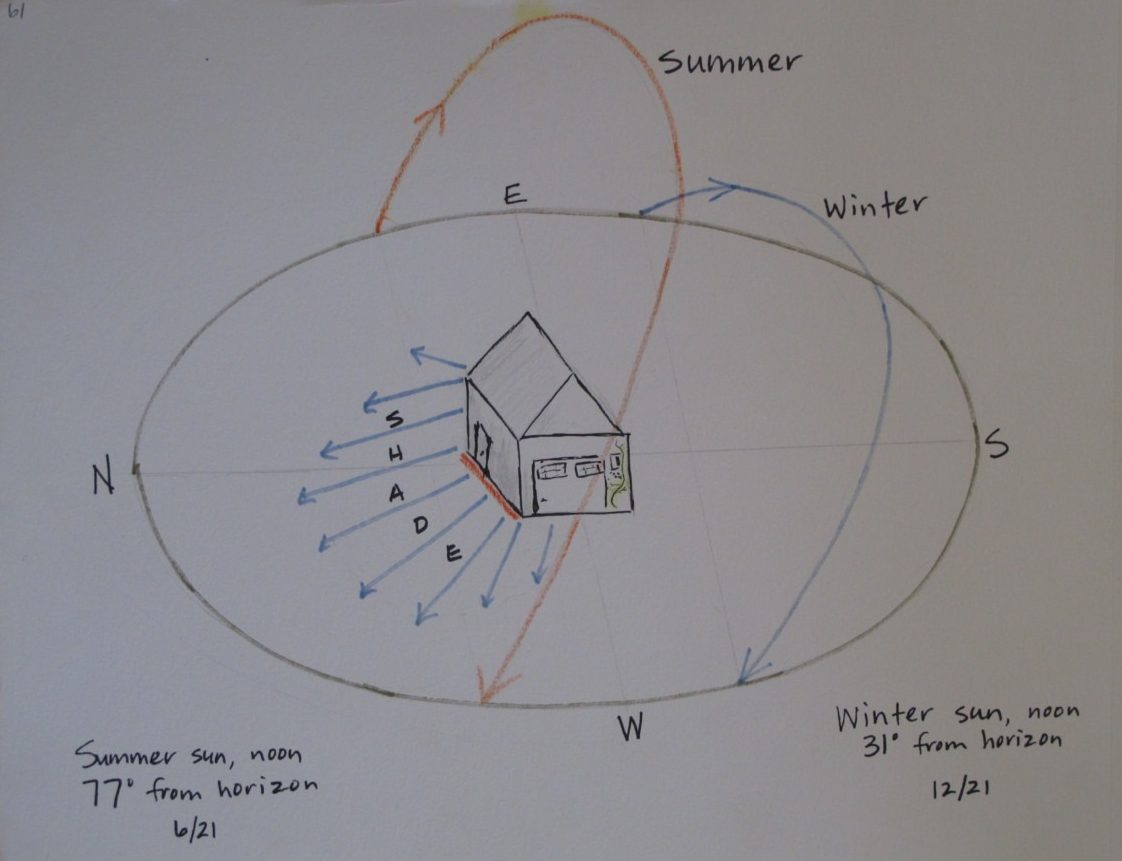 61
Summer
E
Winter
N
S
S
H
A
D
E
W
Summer sun, noon
77° from horizon
6/21
Winter sun, noon
31° from horizon
12/21